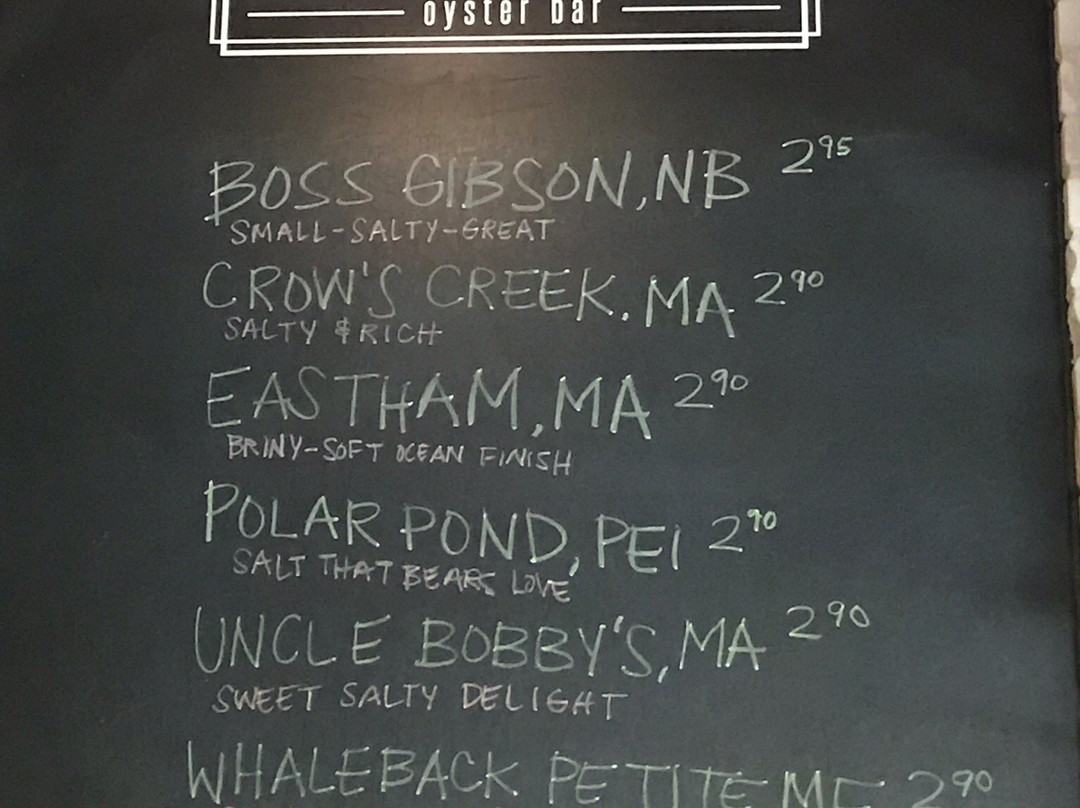 oyster bar
BOSS GIBSON, NB 2 95
SMALL-SALTY-GREAT
CROW'S CREEK. MA 2 90
SALTY & RICH
EASTHAM, MA 2 90
BRINY-SOFT OCEAN FINISH
POLAR POND, PEI 2 90
SALT THAT BEARS LOVE
UNCLE BOBBY'S, MA 2 90
SWEET SALTY DELIGHT
WHALEBACK PETITE ME 2 90